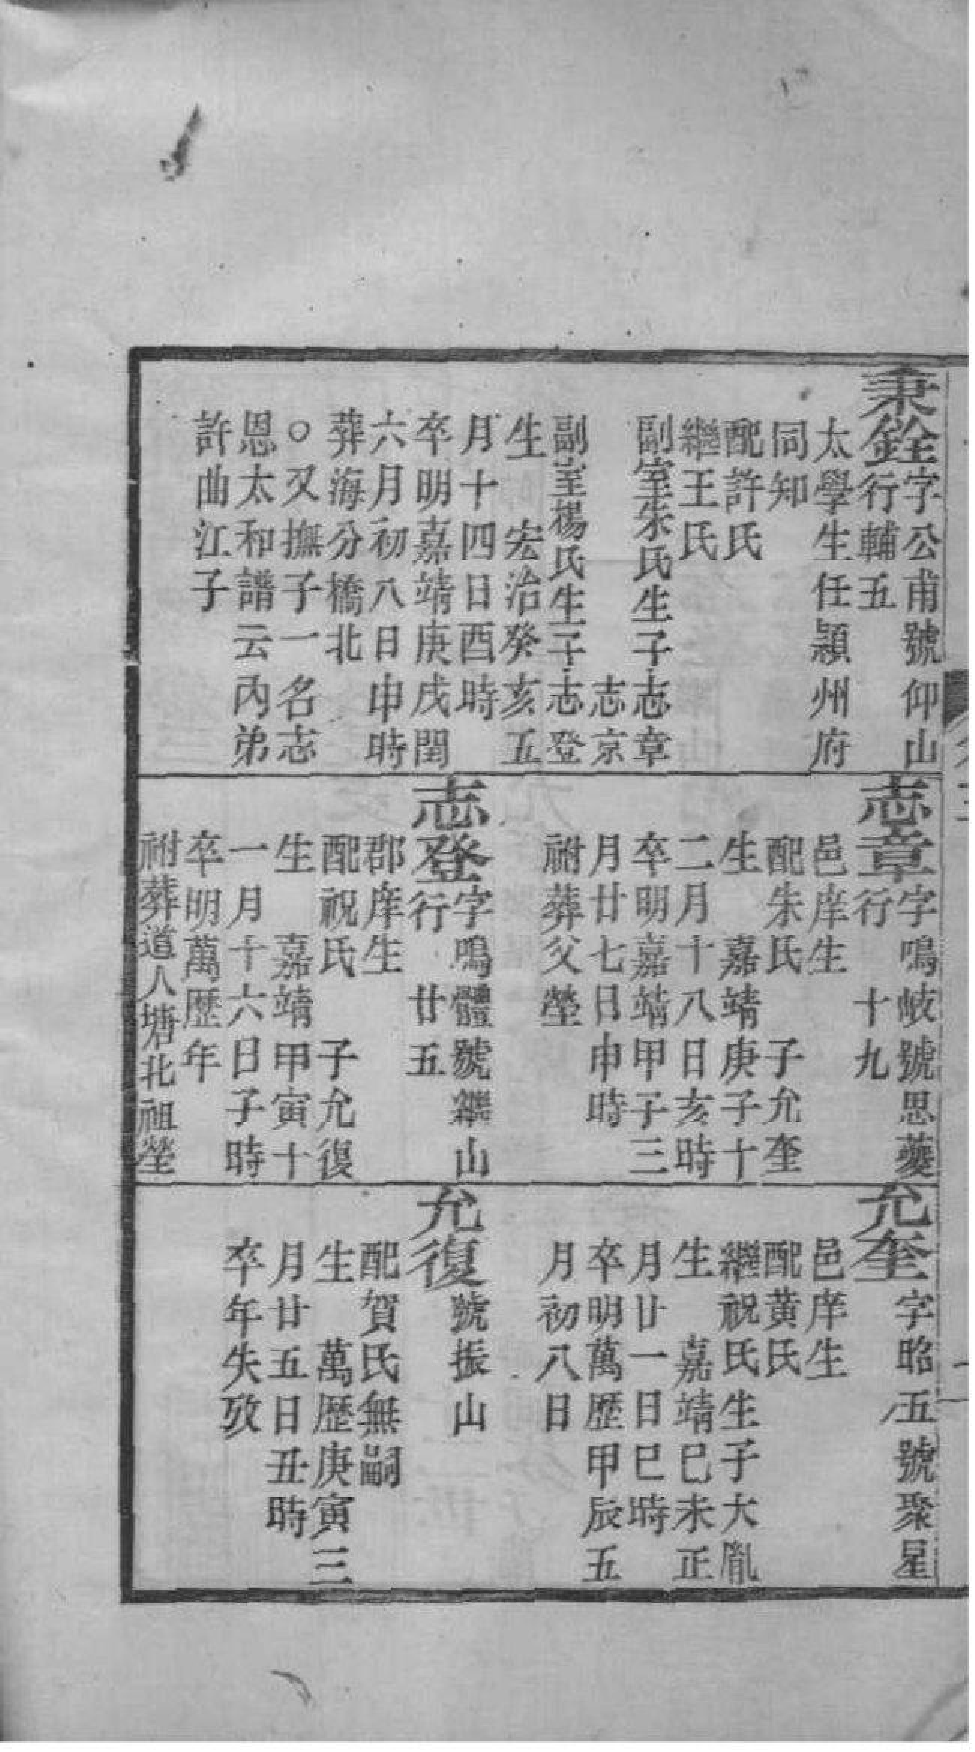 秉銓
字公甫號仰山
行輔五
太學生任潁州府
同知
配許氏
繼王氏
副室朱氏生子志章
志京
副室楊氏生子志登
生 宏治癸亥五
月十四日酉時
卒明嘉靖庚戌閏
六月初八日申時
葬海分橋北
○又撫子一名志
恩太和譜云內弟
許曲江子
志章
字鳴岐號思夔
行 十九
邑庠生
配朱氏 子允奎
生 嘉靖庚子十
二月十八日亥時
卒明嘉靖甲子三
月廿七日申時
祔葬父塋
志登
字鳴體號
山
行 廿五
郡庠生
配祝氏 子允復
生 嘉靖甲寅十
一月十六日子時
卒明萬歷年
祔葬道人塘北祖塋
允奎
字昭五號聚星
邑庠生
配黃氏
繼祝氏生子大胤
生 嘉靖巳未正
月廿一日巳時
卒明萬歷甲辰五
月初八日
允復
號振山
配賀氏無嗣
生 萬歷庚寅三
月廿五日丑時
卒年失攷